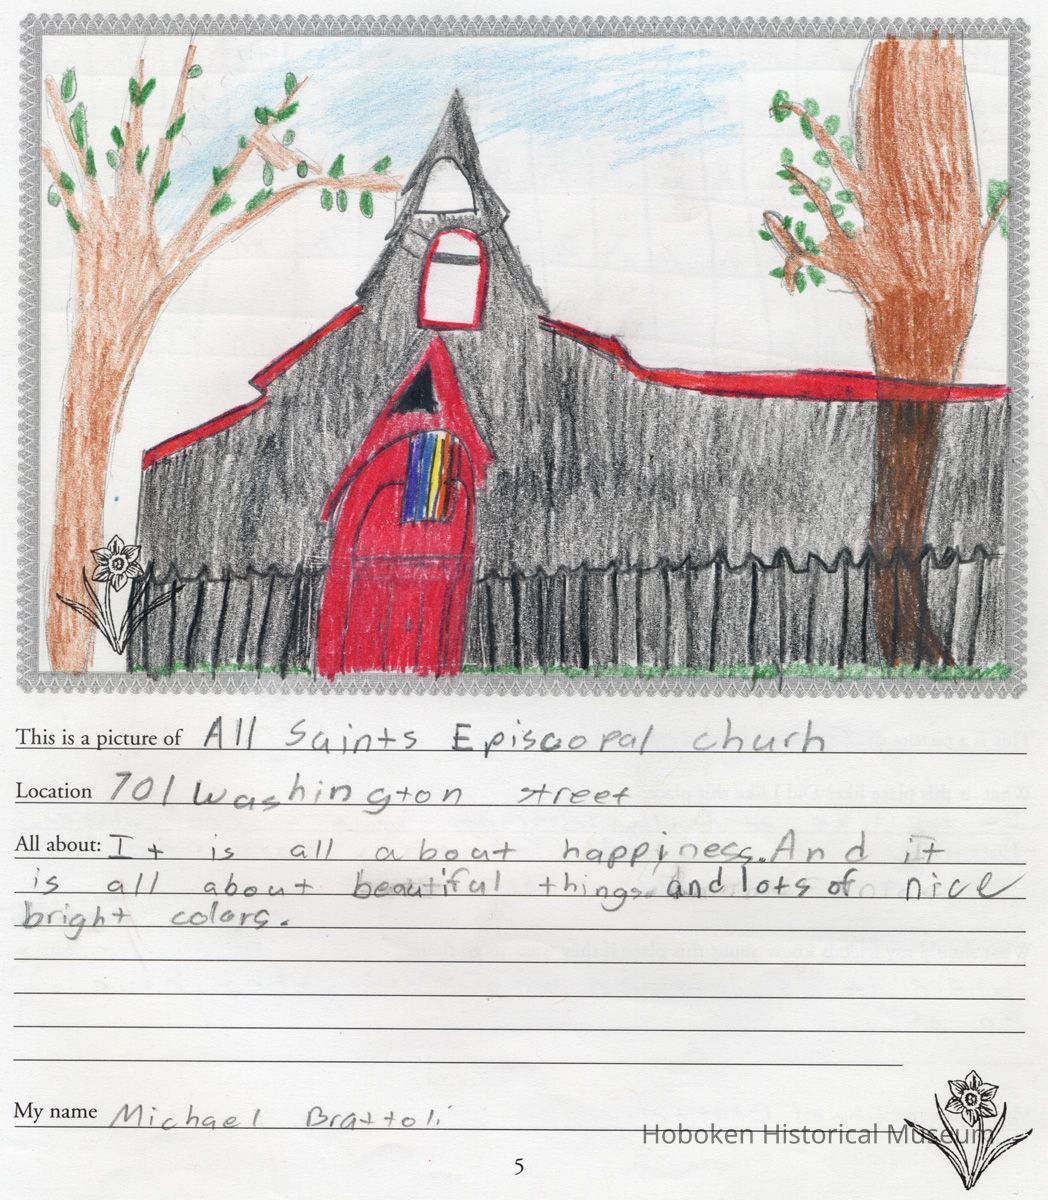 This is a picture of All Saints Episcopal churh
Location 701 Washington street
All about: It is all about happiness. And it
is all about beautiful things. and lots of nice
bright colors.
My name Michael Brattoli
Hoboken Historical Museum
5